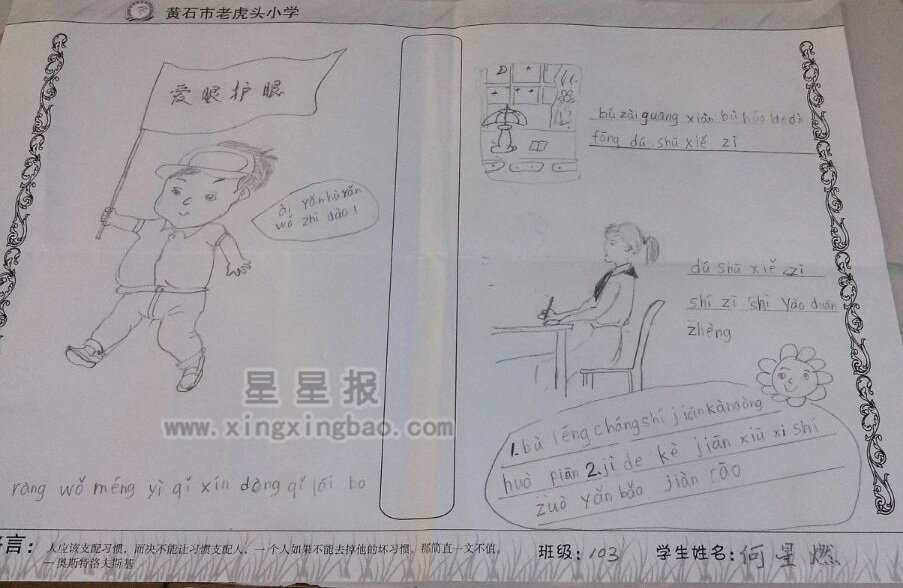 黄石市老虎头小学
爱眼护眼
ài yǎn hù yǎn
wǒ zhī dào!
bú zài guāng xiàn bù hǎo de dì
fāng dú shū xiě zì
dú shū xiě zì
shí zī shì yào duān
zhèng
1.bù léng cháng shí jiān kàn dòng
huà piān 2.jì de kè jiān xiū xi shí
zuò yǎn bǎo jiàn cāo
ràng wǒ méng yì qǐ xín dòng qǐ lái ba
星星报
www.xingxingbao.com
言：人应该支配习惯，而决不能让习惯支配人，一个人如果不能去掉他的坏习惯，那简直一文不值。
—奥斯特洛夫斯基
班级：103 学生姓名：何星燃